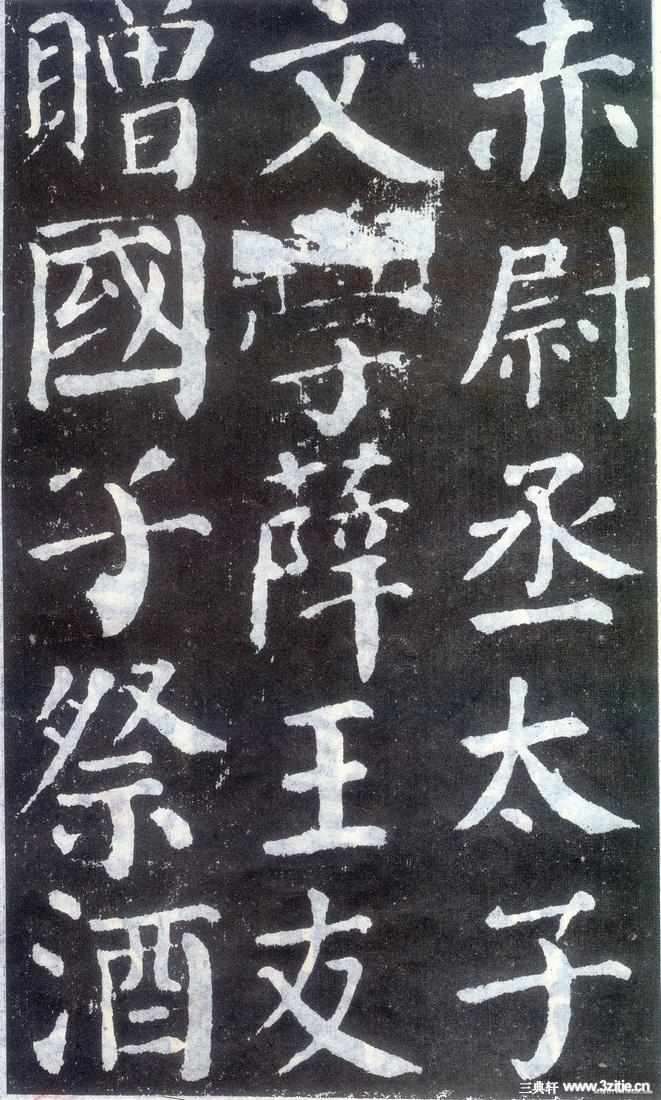 赤尉丞太子
文學薛王友
贈國子祭酒
三典轩 www.3zitie.cn